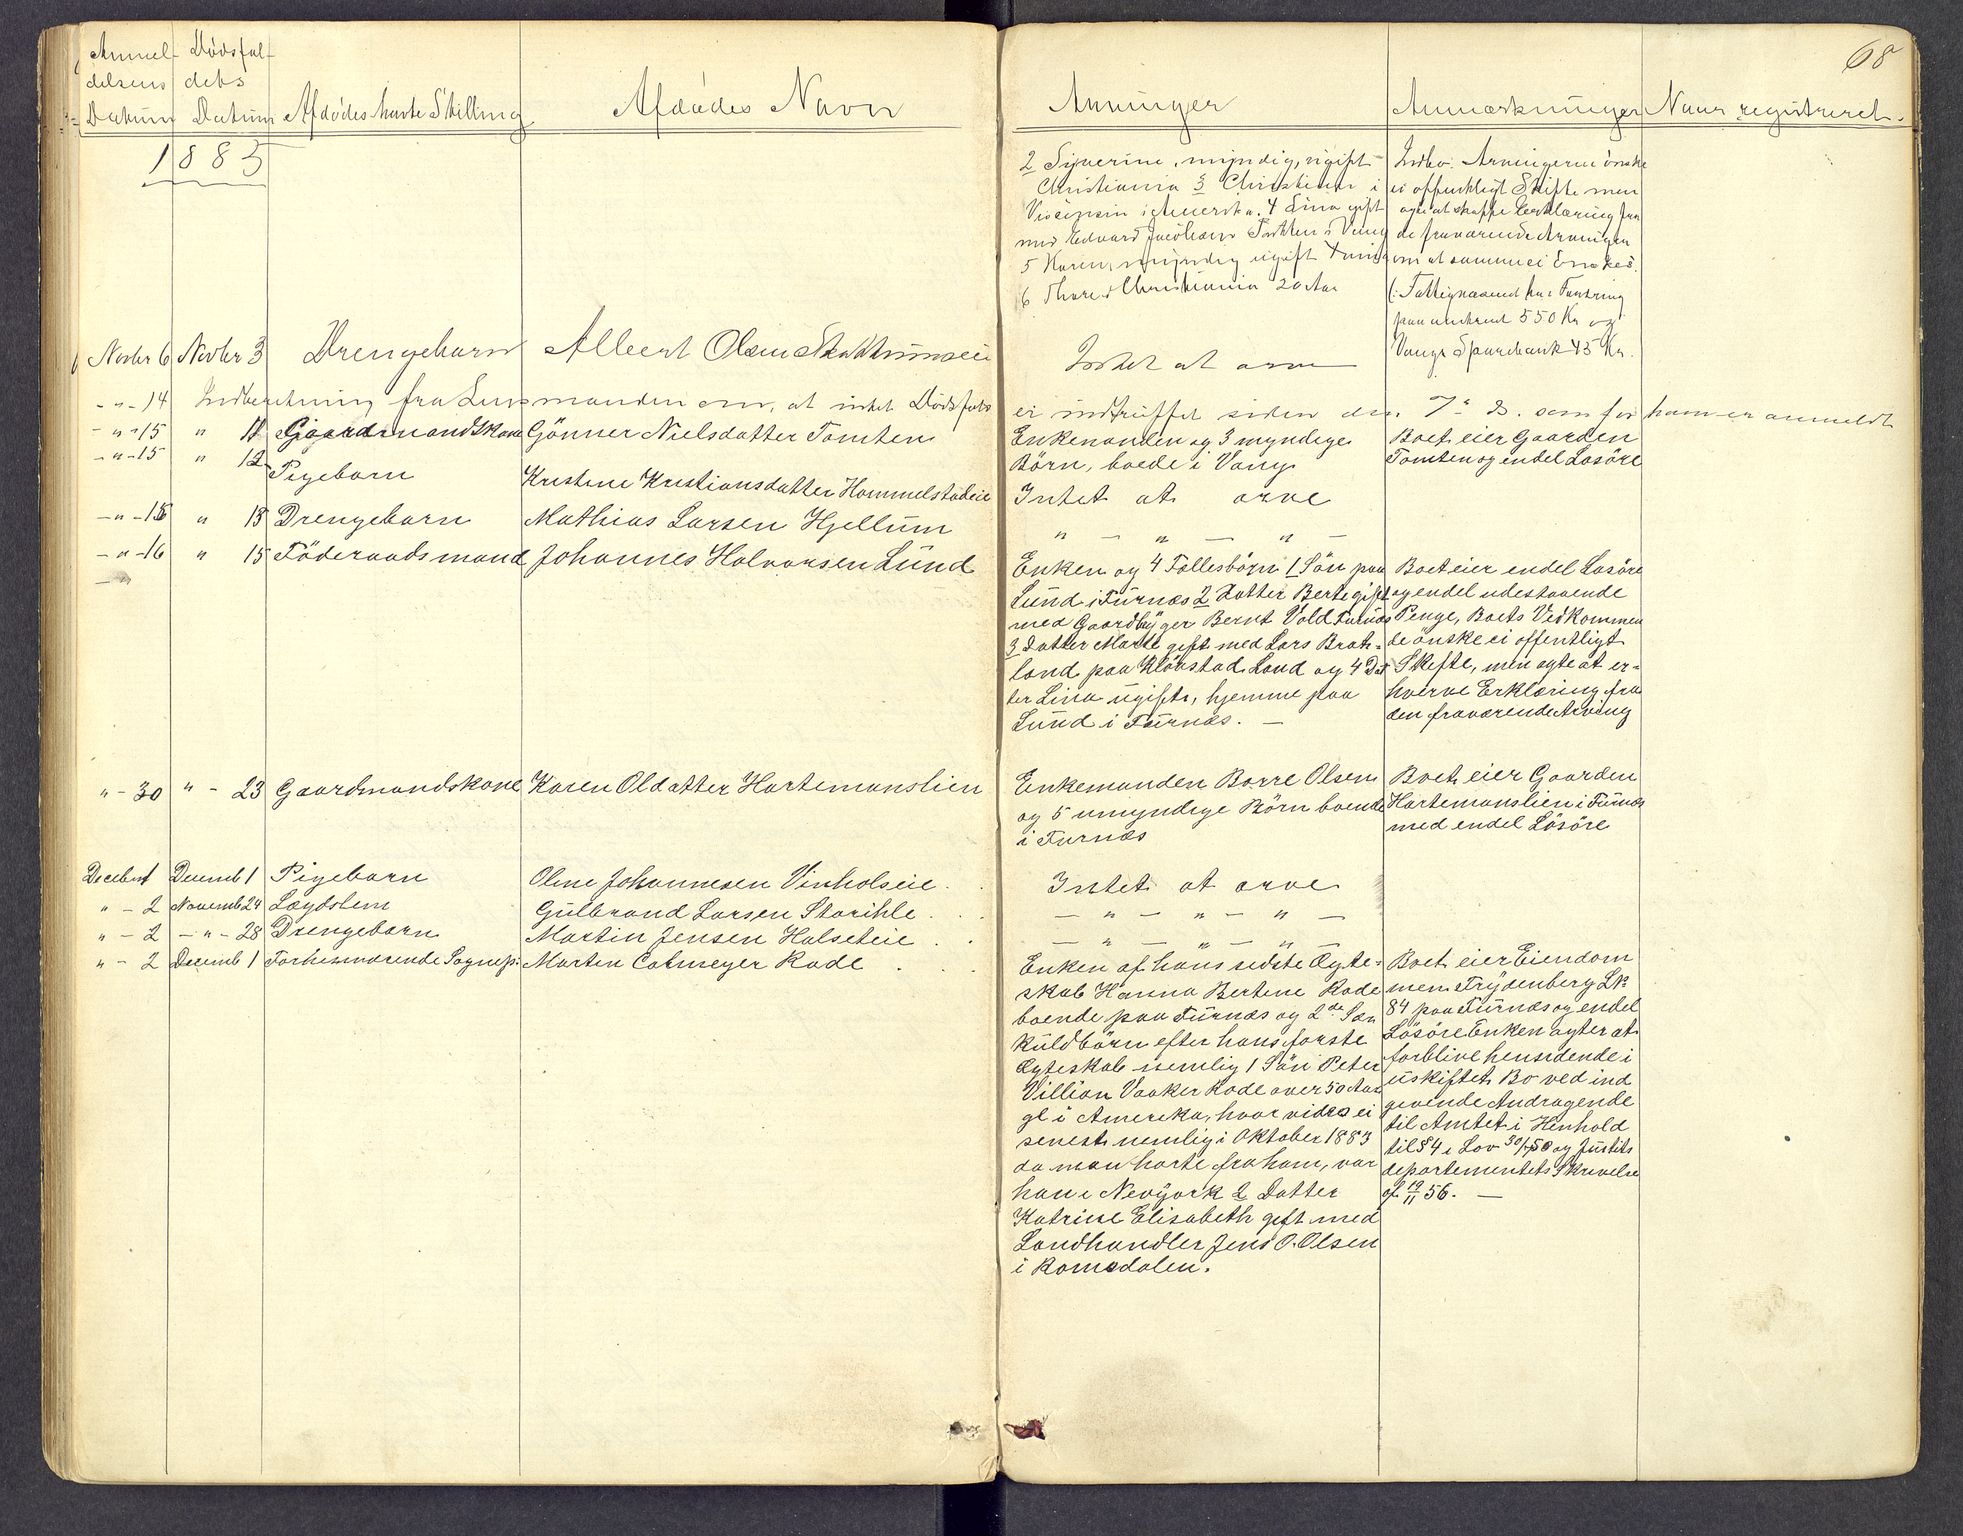 68
Anmel- Dødsfal-
delsens dets
Datum Datum Afdødes havte Stilling Afdødes Navn Arvinger Anmærkninger Naar registreret.
1883
2 Syverine, myndig, ugift
Christiania 3 Christian i
i Amerika. 4 Lina gift
med Edvard Jacobsen i Vang
5 Karen, myndig ugift
6 Thore i Christiania 20 Aar
Indbo. Arvingerne önske
ei offentligt Skifte men
agte at skaffe Erklæring fra
de fraværende Arvinger
om at samme ei Önskes.
(: Fattigvæsenet har Fordring
paa omtrent 550 Kr og
Vangs Sparebank 45 Kr.
Novbr 6 Novbr 3 Drengebarn Albert Olsen Intet at arve
- " - 14 Indberetning fra Lensmanden om, at intet Dödsfald ei indtruffet siden den 7de ds. som for ham er anmeldt
- " - 15 " 11 Gaardmandskone Gönner Nielsdatter Tomten
Enkemanden og 3 myndige
Börn, boede i Vang.
Boet eier Gaarden
Tomten og endel Lösöre
- " - 15 " 12 Pigebarn Kristine Kristiansdatter Hommelstadeie Intet at arve
- " - 15 " 13 Drengebarn Mathias Larsen Hjellum " - " - " -
- " - 16 " 15 Föderaadsmand Johannes Halvorsen Lund
- "
Enken og 4 Fællesbörn 1 Sön paa
Lund i Furnæs 2 Datter Berte gift
med Gaardbryger Bernt Vold Furnæs
3 Datter Marte gift med Lars Brat-
land paa Klövstad Land og 4 Dat
ter Lina ugift, hjemme paa
Lund i Furnæs. -
Boet eier endel Lösöre
og endel udestaaende
Penge, Boets Vedkommen
de önske ei offentligt
Skifte, men agte at er-
hverve Erklæring fra
den fraværende Arving
" - 30 " - 23 Gaardmandskone Karen Oldatter Hartemanslien
Enkemanden Borre Olsen
og 5 umyndige Börn boende
i Furnæs
Boet eier Gaarden
Hartemanslien i Furnæs
med endel Lösöre
Decebm 1 Decemb 1 Pigebarn Oline Johannesen Vinholseie . . Intet at arve
" - 2 Novemb 24 Lægdslem Gulbrand Larsen Storihle . . . - " - " - " -
" - 2 - " - 28 Drengebarn Martin Jensen Halseteie . . - " - " - " -
" - 2 Decemb 1 Forhenværende Sognep: Morten Colmeyer Rode . . .
Enken af hans sidste Ægte-
skab Hanna Bertine Rode
boende paa Furnæs og 2de Sær
kuldbörn efter hans förste
Ægteskab nemlig 1 Sön Peter
Villian Vaaker Rode over 50 Aar
gl i Amerika, hvor vides ei
senest nemlig i Oktober 1883
da man hörte fra ham, var
han i Nevyork 2 Datter
Katrine Elisabeth gift med
Landhandler Jens O. Olsen
i Romsdalen.
Boet eier Eiendom
men Frydenberg LN
84 paa Furnæs og endel
Lösöre Enken agter at
forblive hensidende i
uskiftet Bo ved ind
givende Andragende
til Amtet i Henhold
til § 4 i Lov 30/7 50 og Justits
departementets Skrivelse
af 19/11 56. -